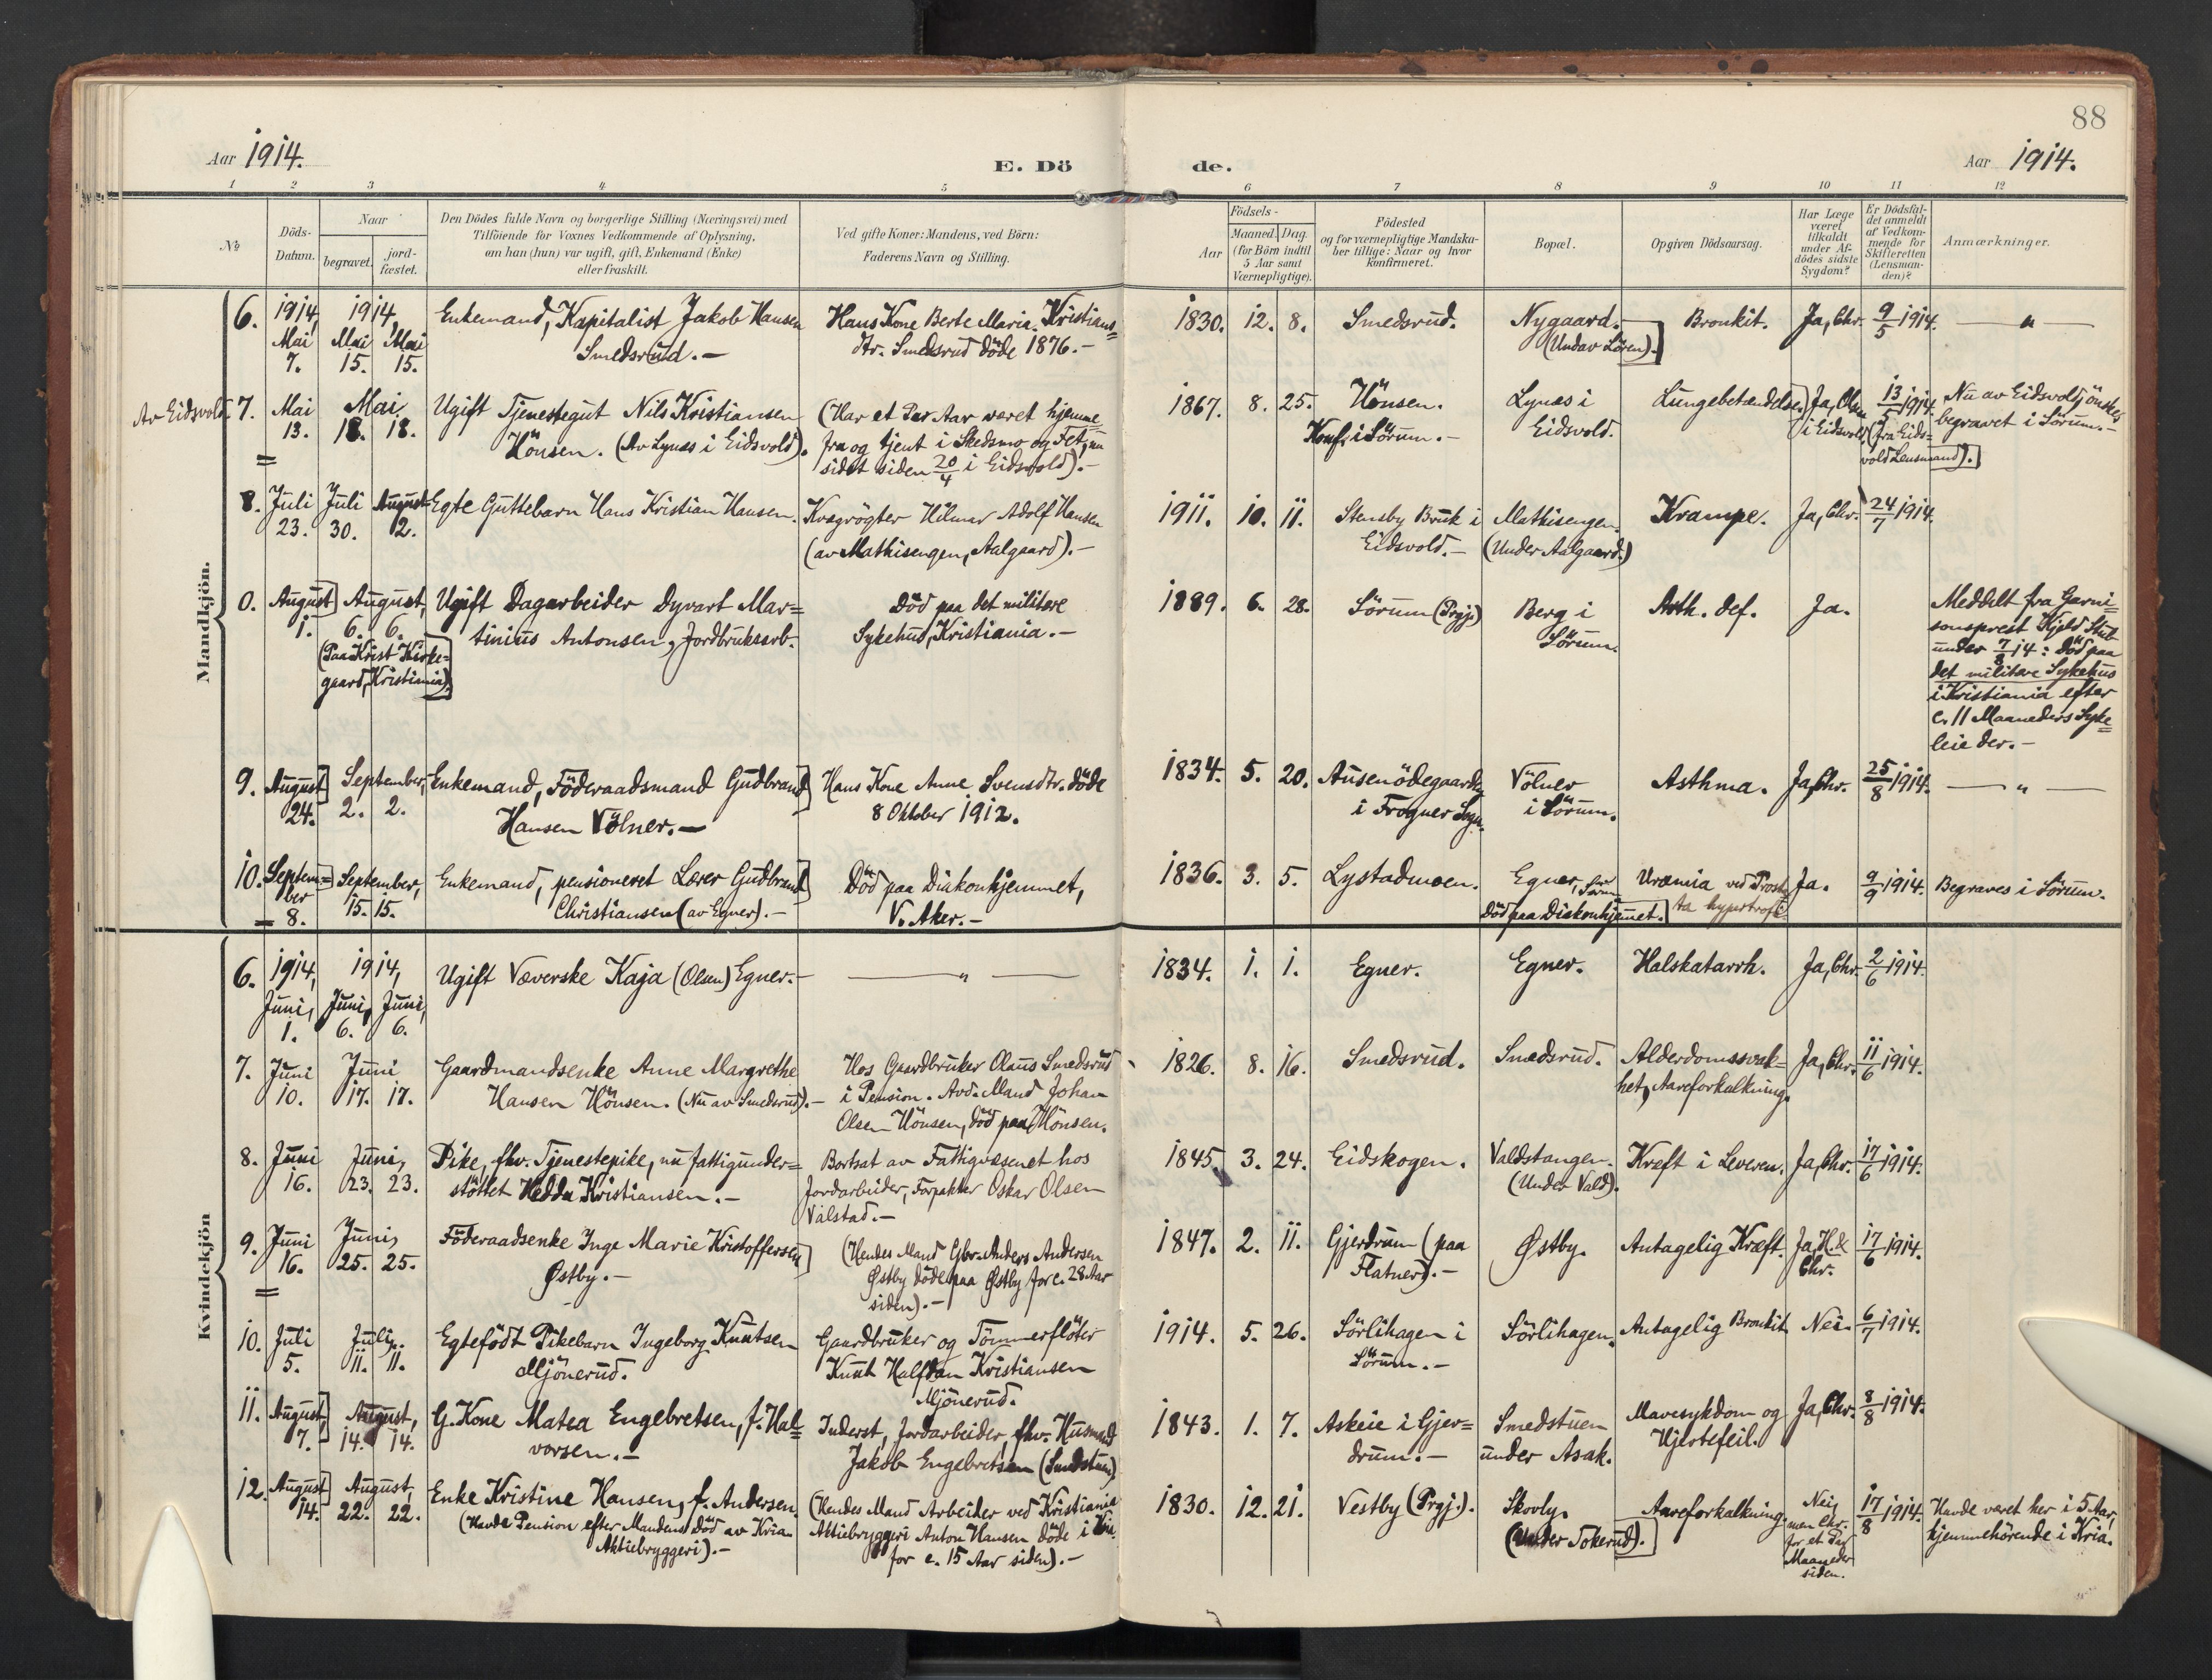 88
Aar 1914.
E. Dö de.
Aar 1914.
1 2 3 4 5 6 7 8 9 10 11 12
No
Döds-
Datum.
Naar
begravet.
jord-
fæstet.
Den Dödes fulde Navn og borgerlige Stilling (Næringsvei) med
Tilföiende for Voxnes Vedkommende af Oplysning,
om han (hun) var ugift, gift, Enkemand (Enke)
eller fraskilt.
Ved gifte Koner: Mandens, ved Börn:
Faderens Navn og Stilling.
Födsels-
Aar
Maaned. Dag.
(for Börn indtil
5 Aar samt
Værnepligtige).
Födested
og for værnepligtige Mandska-
ber tillige: Naar og hvor
konfirmeret.
Bopæl.
Opgiven Dödsaarsag.
Har Læge
været
tilkaldt
under Af-
dödes sidste
Sygdom?
Er Dödsfal-
det anmeldt
af Vedkom-
mende for
Skifteretten
(Lensman-
den)?
Anmærkninger.
Mandkjön.
6.
1914,
Mai
7.
1914,
Mai Mai
15. 15.
Enkemand, Kapitalist Jakob Hansen
Smedsrud.—
Hans Kone Berte Marie Kristians=
dtr. Smedsrud döde 1876.—
1830. 12. 8.
Smedsrud.
Nygaard.
(Undav Lören).
Bronkit.
Ja, Chr.
9/5 1914.
— " —
Av Eidsvold.
7.
Mai
13.
Mai
18. 18.
Ugift Tjenestegut Nils Kristiansen
Hönsen. (Av Lynæs i Eidsvold).
(Har et Par Aar været hjemme=
fra og tjent i Skedsmo og Fet, nu
sidst siden 20/4 i Eidsvold).—
1867. 8. 25.
Hönsen.
Konf. i Sörum.—
Lynæs i
Eidsvold.
Lungebetændelse.
Ja, Olsen
i Eidsvold
13/5 1914.
(fra Eids=
vold Lensmand).
Nu av Eidsvold, önskes
begravet i Sörum.—
8.
Juli
23.
Juli August
30. 2.
Egte Guttebarn Hans Kristian Hansen.
Kvægrögter Hilmar Adolf Hansen
(av Mathisengen, Aalgaard).—
1911. 10. 11.
Stensby Bruk i
Eidsvold.—
Mathisengen.
(Under Aalgaard.)
Krampe.
Ja, Chr.
24/7 1914.
0.
August
1.
August,
6. 6.
(Paa Krist Kirke=
gaard, Kristiania).
Ugift Dagarbeider Dyvart Mar=
tinius Antonsen, Jordbruksarb.
Död paa det militære
Sykehus, Kristiania.—
1889. 6. 28.
Sörum (Prgj.)
Berg i
Sörum.
Arth. def.
Ja.
Meddelt fra Garni=
sonsprest Kjeld Stub
under 7/8 14: Död paa
det militære Sykehus
i Kristiania efter
c. 11 Maaneders Syke=
leie der.—
9.
August
24.
September,
2. 2.
Enkemand, Föderaadsmand Gudbrand
Hansen Völner.—
Hans Kone Anne Svensdtr. döde
8 Oktober 1912.
1834. 5. 20.
Ausenödegaarden
i Frogner Sogn.
Völner
i Sörum.
Asthma.
Ja, Chr.
25/8 1914.
— " —
10.
Septem=
ber
8.
September,
15. 15.
Enkemand, pensioneret Lærer Gudbrand
Christiansen (av Egner).—
Död paa Diakonhjemmet,
V. Aker.—
1836. 3. 5.
Lystadmoen.
Egner, Sörum
Död paa Diakonhjemmet.
Uræmia ved Prosta=
ta hypertrofi
Ja.
9/9 1914.
Begraves i Sörum.
Kvindekjön
6.
1914,
Juni,
1.
1914,
Juni, Juni,
6. 6.
Ugift Væverske Kaja (Olsen) Egner.—
— " —
1834. 1. 1.
Egner.
Egner.
Halskatarrh.
Ja, Chr.
2/6 1914.
7.
Juni
10.
Juni
17. 17.
Gaardmandsenke Anne Margrethe
Hansen Hönsen. (Nu av Smedsrud).—
Hos Gaardbruker Olaus Smedsrud
i Pension. Avd. Mand Johan
Olsen Hönsen, död paa Hönsen.
1826. 8. 16.
Smedsrud.
Smedsrud.
Alderdomssvak=
het, Aareforkalkning.
Ja, Chr.
11/6 1914.
8.
Juni
16.
Juni,
23. 23.
Pike, fhv. Tjenestepike, nu fattigunder=
stöttet Hedda Kristiansen.—
Bortsat av Fattigvæsenet hos
Jordarbeider, Forpakter Oskar Olsen
Valstad.—
1845. 3. 24.
Eidskogen.
Valdstangen.
(Under Vald).
Kræft i Leveren.
Ja, Chr.
17/6 1914.
9.
Juni
16.
Juni,
25. 25.
Föderaadsenke Inge Marie Kristoffersen
Østby.—
(Hendes Mand Gbr. Anders Andersen
Østby döde paa Østby for c. 28 Aar
siden).—
1847. 2. 11.
Gjerdrum (paa
Flatner).—
Østby.
Antagelig Kræft.
Ja, H. &
Chr.
17/6 1914.
10.
Juli
5.
Juli,
11. 11.
Egtefödt Pikebarn Ingeborg Knutsen
Mjönerud.
Gaardbruker og Tömmerflöter
Knut Halfdan Kristiansen
Mjönerud.
1914. 5. 26.
Sörlihagen i
Sörum.—
Sörlihagen.
Antagelig Bronkit
Nei.
6/7 1914.
11.
August,
7.
August,
14. 14.
G. Kone Matea Engebretsen, f. Hal=
vorsen.—
Inderst, Jordarbeider, fhv. Husmand
Jakob Engebretsen (Smedstuen)
1843. 1. 7.
Askeie i Gjer=
drum.—
Smedstuen
under Asak.
Mavesykdom og
Hjertefeil.
Ja, Chr.
8/8 1914.
12.
August
14.
August,
22. 22.
Enke Kristine Hansen, f. Andersen.
(Havde Pension efter Mandens Död av Kria.
Aktiebryggeri).—
(Hendes Mand Arbeider ved Kristiania
Aktiebryggeri Anton Hansen döde i Kria.
for c. 15 Aar siden).—
1830. 12. 21.
Vestby (Prgj.).
Skovly.
(Under Tokerud).
Aareforkalkning.
Nei,
men Chr.
for et Par
Maaneder
siden.
17/8 1914.
Havde været her i 5 Aar,
hjemmehörende i Kria.